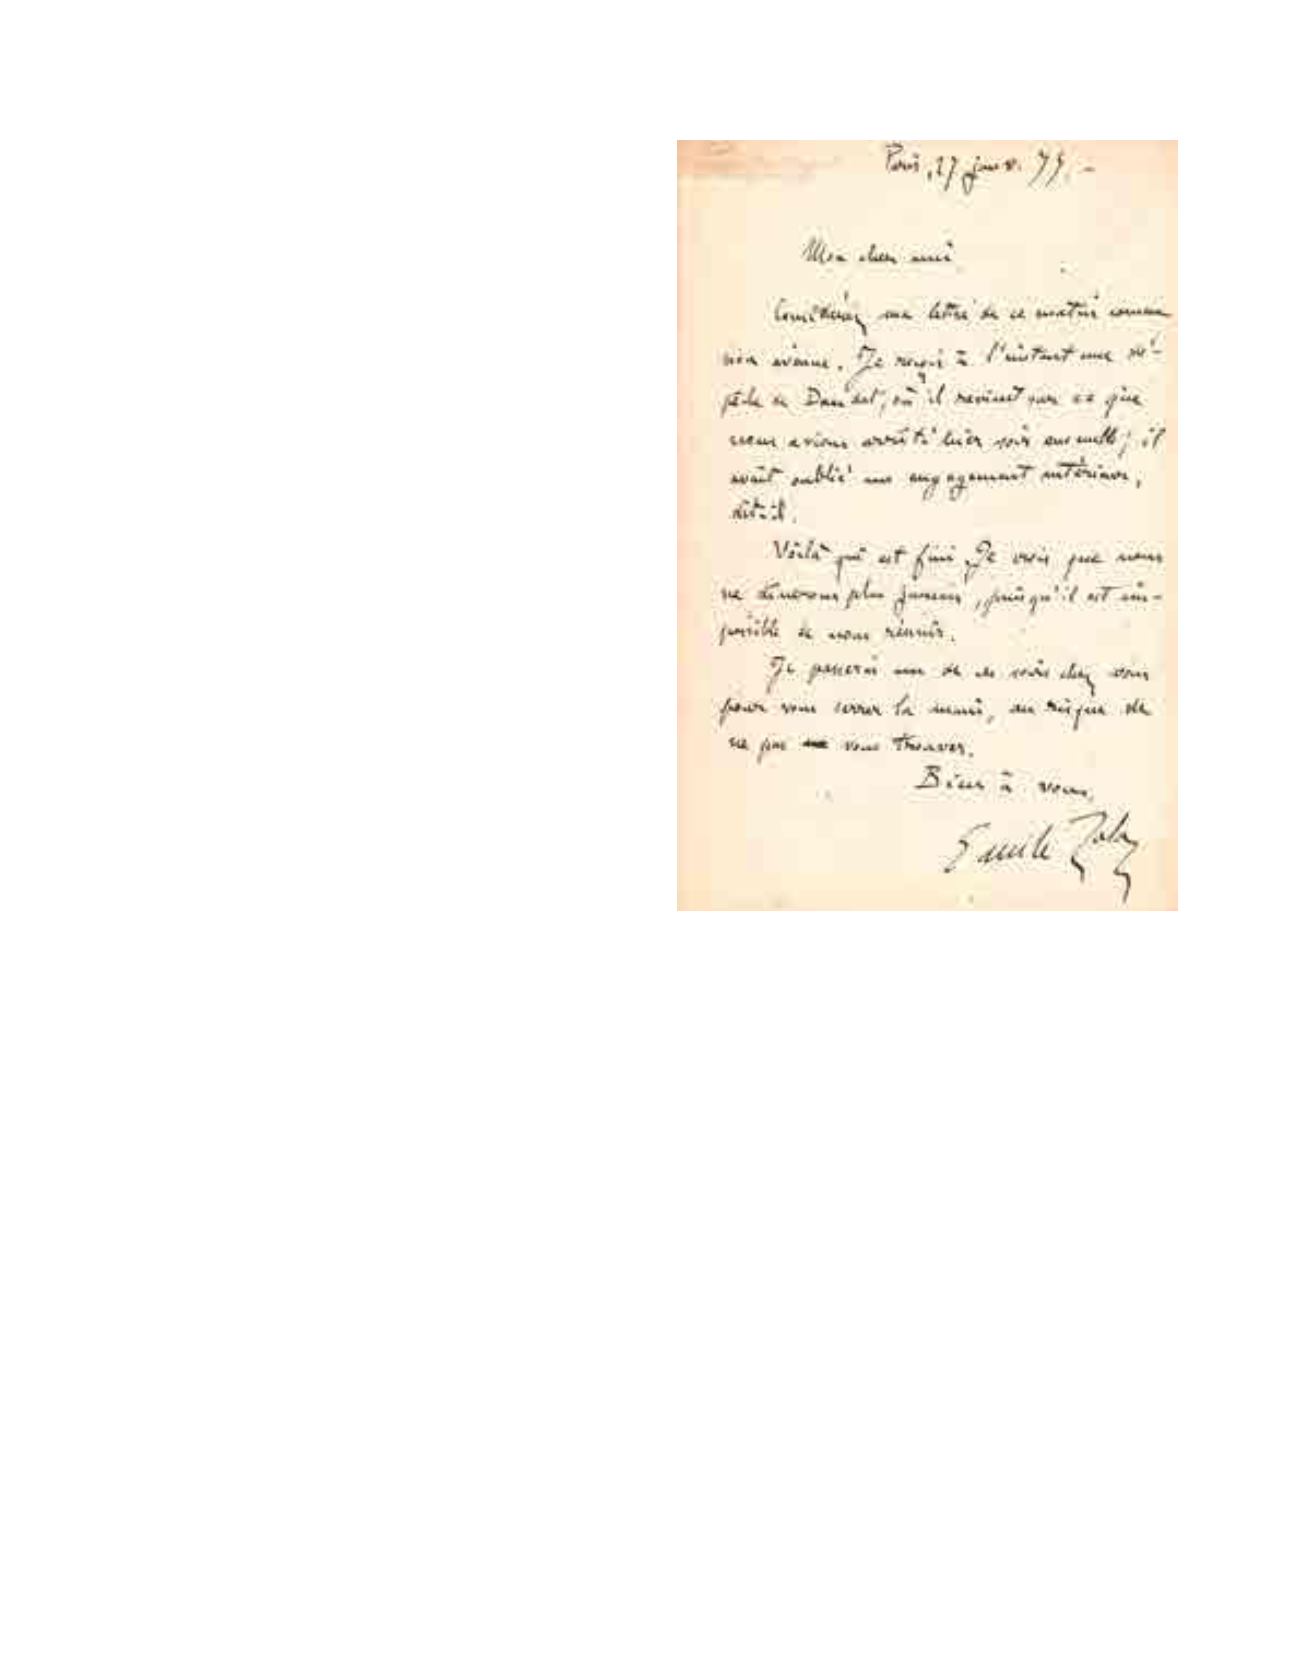 Paris, 27 janv. 79. –
Mon cher ami
Considérez ma lettre de ce matin comme
non avenue. Je reçois à l'instant une dé-
pêche de Daudet, où il revient sur ce que
nous avions arrêté hier soir ensemble; il
avait oublié un engagement antérieur,
dit-il.
Voilà qui est fini. Je crois que nous
ne dînerons plus jamais, puisqu'il est im-
possible de nous réunir.
Je passerai un de ces soirs chez vous
pour vous serrer la main, au risque de
ne pas vous trouver.
Bien à vous,
Emile Zola